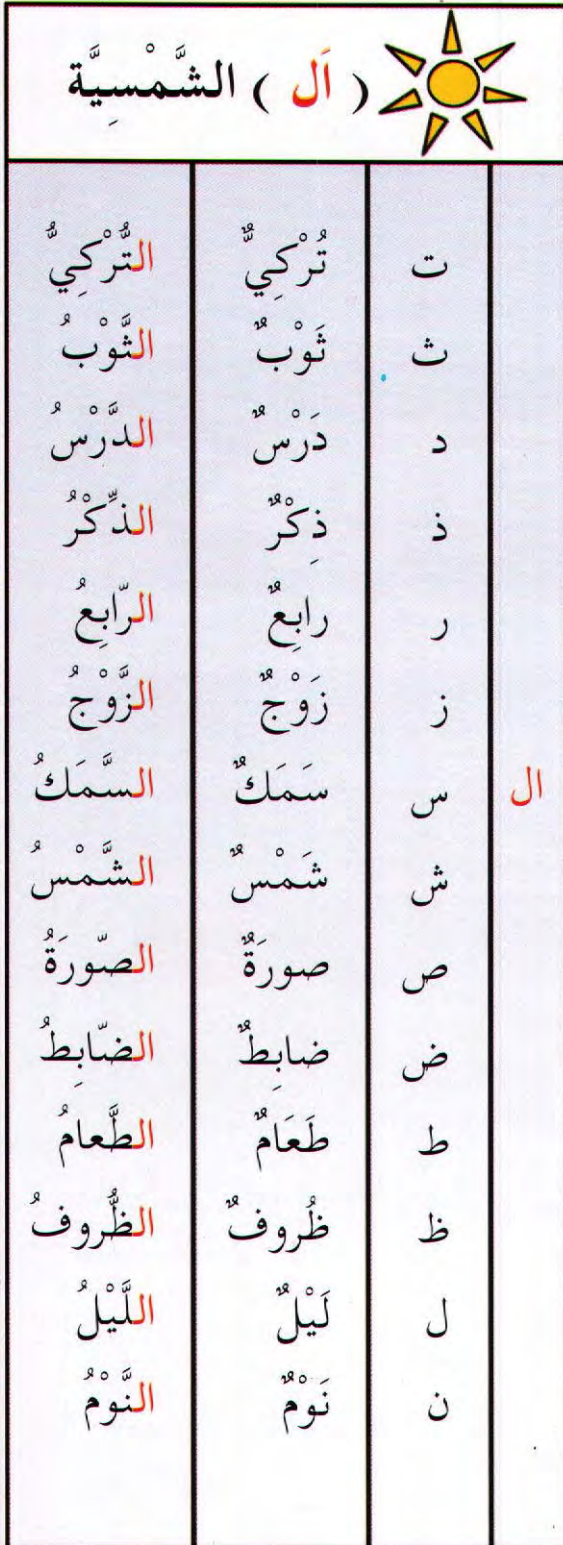 ( اَل ) الشَّمْسِيَّة
ت تُرْكِيٌّ التُّرْكِيُّ
ث ثَوْبٌ الثَّوْبُ
د دَرْسٌ الدَّرْسُ
ذ ذِكْرٌ الذِّكْرُ
ر رابِعٌ الرّابِعُ
ز زَوْجٌ الزَّوْجُ
ال س سَمَكٌ السَّمَكُ
ش شَمْسٌ الشَّمْسُ
ص صورَةٌ الصّورَةُ
ض ضابِطٌ الضّابِطُ
ط طَعَامٌ الطَّعامُ
ظ ظُروفٌ الظُّروفُ
ل لَيْلٌ اللَّيْلُ
ن نَوْمٌ النَّوْمُ